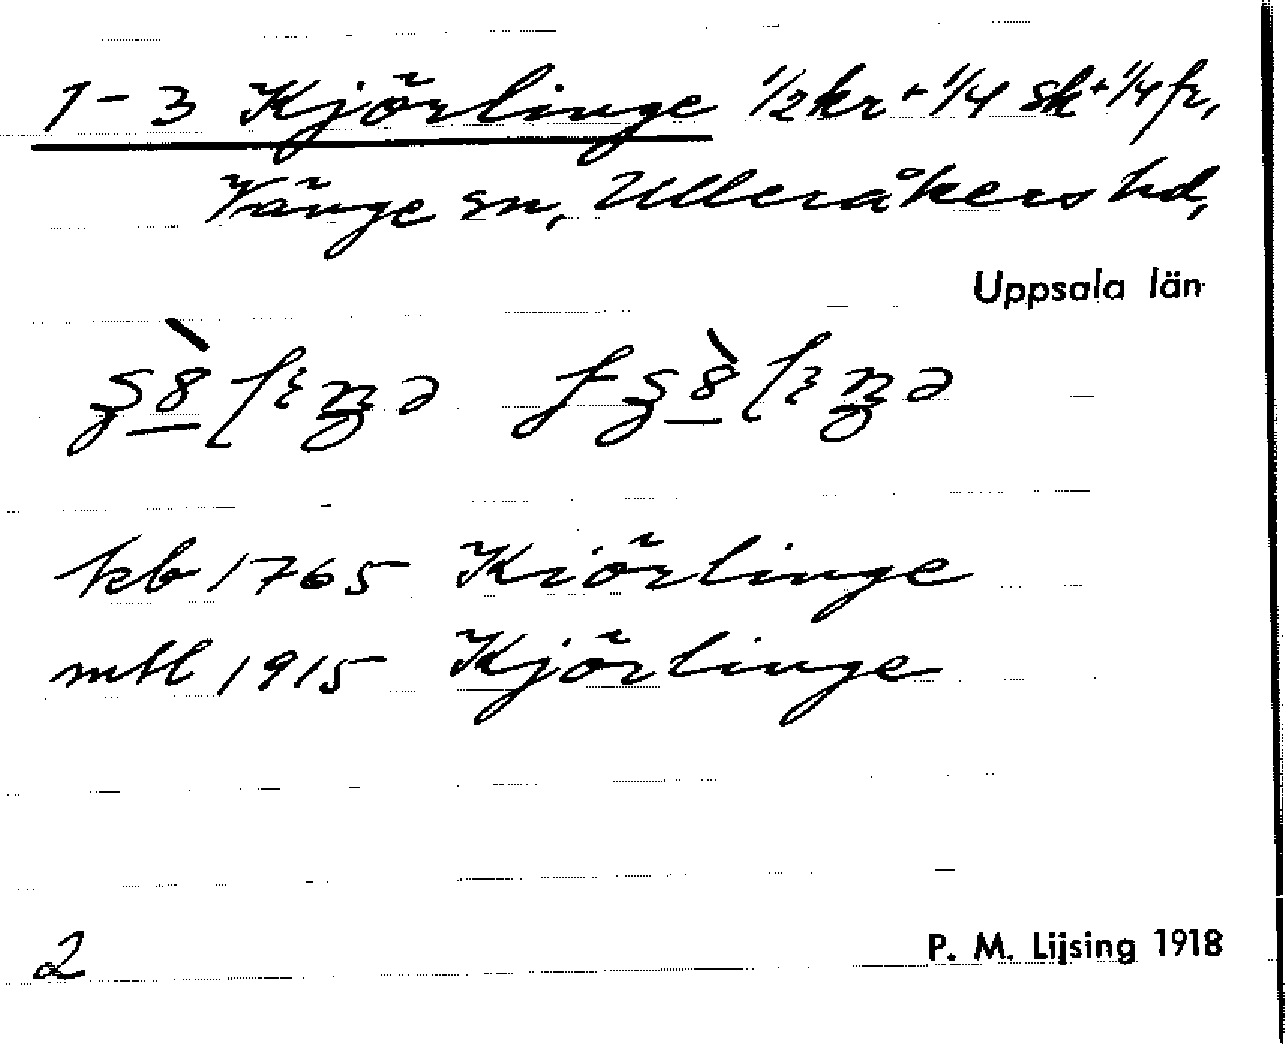 1-3 Kjörlinge 1/2 kr + 1/4 sk + 1/4 fr,
Vänge sn, Ulleråkers hd,
Uppsala län
kb 1765 Kiörlinge
mtl 1915 Kjörlinge
2
P. M. Lijsing 1918